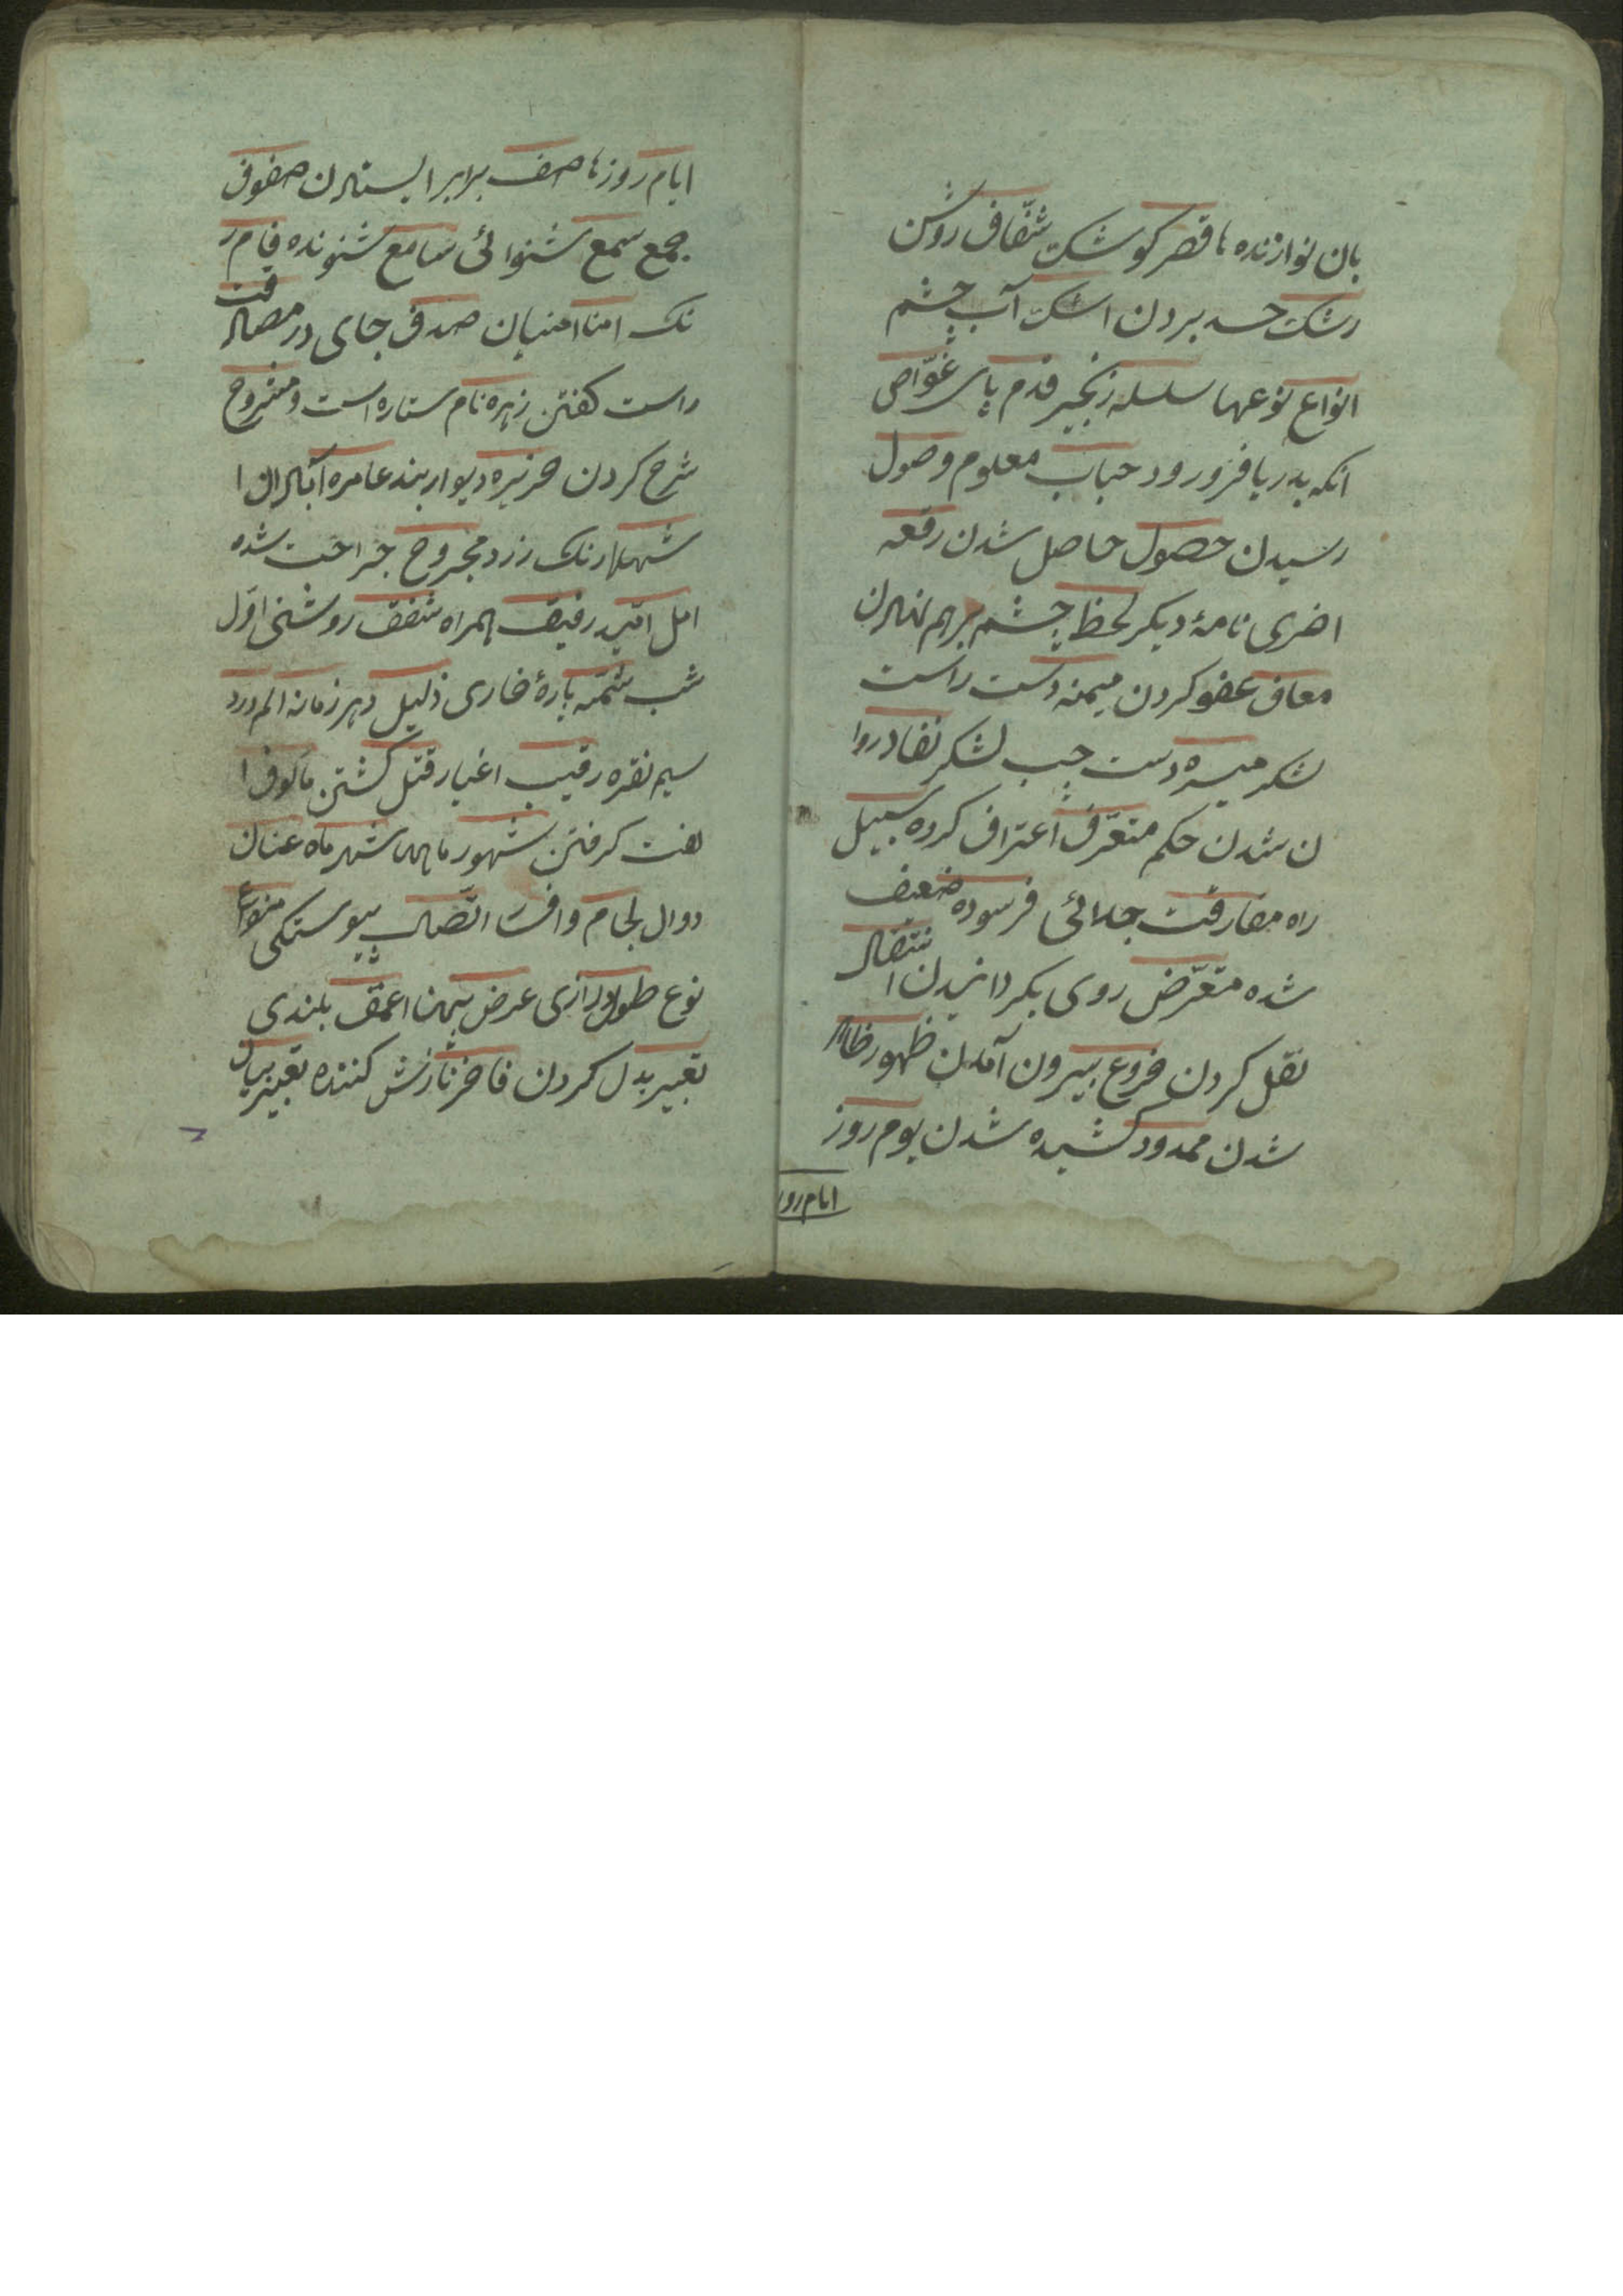 بان نوازنده ها قصر کوشک شفّاف روشن
رشک حسد بردن اشک آب چشم
انواع نوعها سلسله زنجیر قدم پای غوّاص
انکه بدریا فرو رود حباب معلوم وصول
رسیدن حصول حاصل شدن رقعه
اخری نامهٔ دیکر لحظ چشم برهم نهادن
معاف عفو کردن میمنه دست راست
لشکر میسره دست چپ لشکر نفاد روا
ن شدن حکم متعرّف اعتراف کرده سبیل
راه مفارقت جدائی فرسوده ضعیف
شده متعرّض روی بکردانیدن انتقال
نقل کردن فروع بیرون آمدن ظهور ظاهر
شدن ممدود کشیده شدن یوم روز
ایام روز
ایام روزها صف برابر ایستادن صفوف
جمع سمع شنوائی سامع شنونده فام ر
نک امنا امنیان صدق جای در مصادقت
راست کفتن زهره نام ستاره است و مشروح
شرح کردن جزیره دیوار بند عامره آبادان ا
شهلا رنک زرد مجروح جراحت شده
امل امّید رفیق همراه شفق روشنی اوّل
شب شمّه پارهٔ خاری ذلیل دهر زمانه الم درد
سیم نقره رقیب اغیار قتل کشتن مألوف ا
لفت کرفتن شهور ماهها شهر ماه عنان
دوال لجام وافر اتّصال پیوستکی منواع
نوع طول درازی عرض پهنا عمق بلندی
تغییر بدل کردن فاخر نازش کننده تعبیر بیان